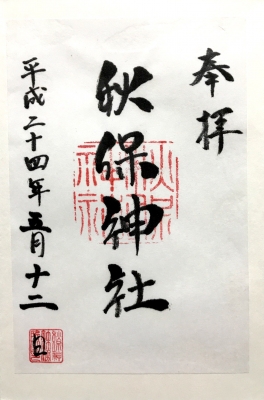 奉拝
秋保神社
平成二十四年五月十二日